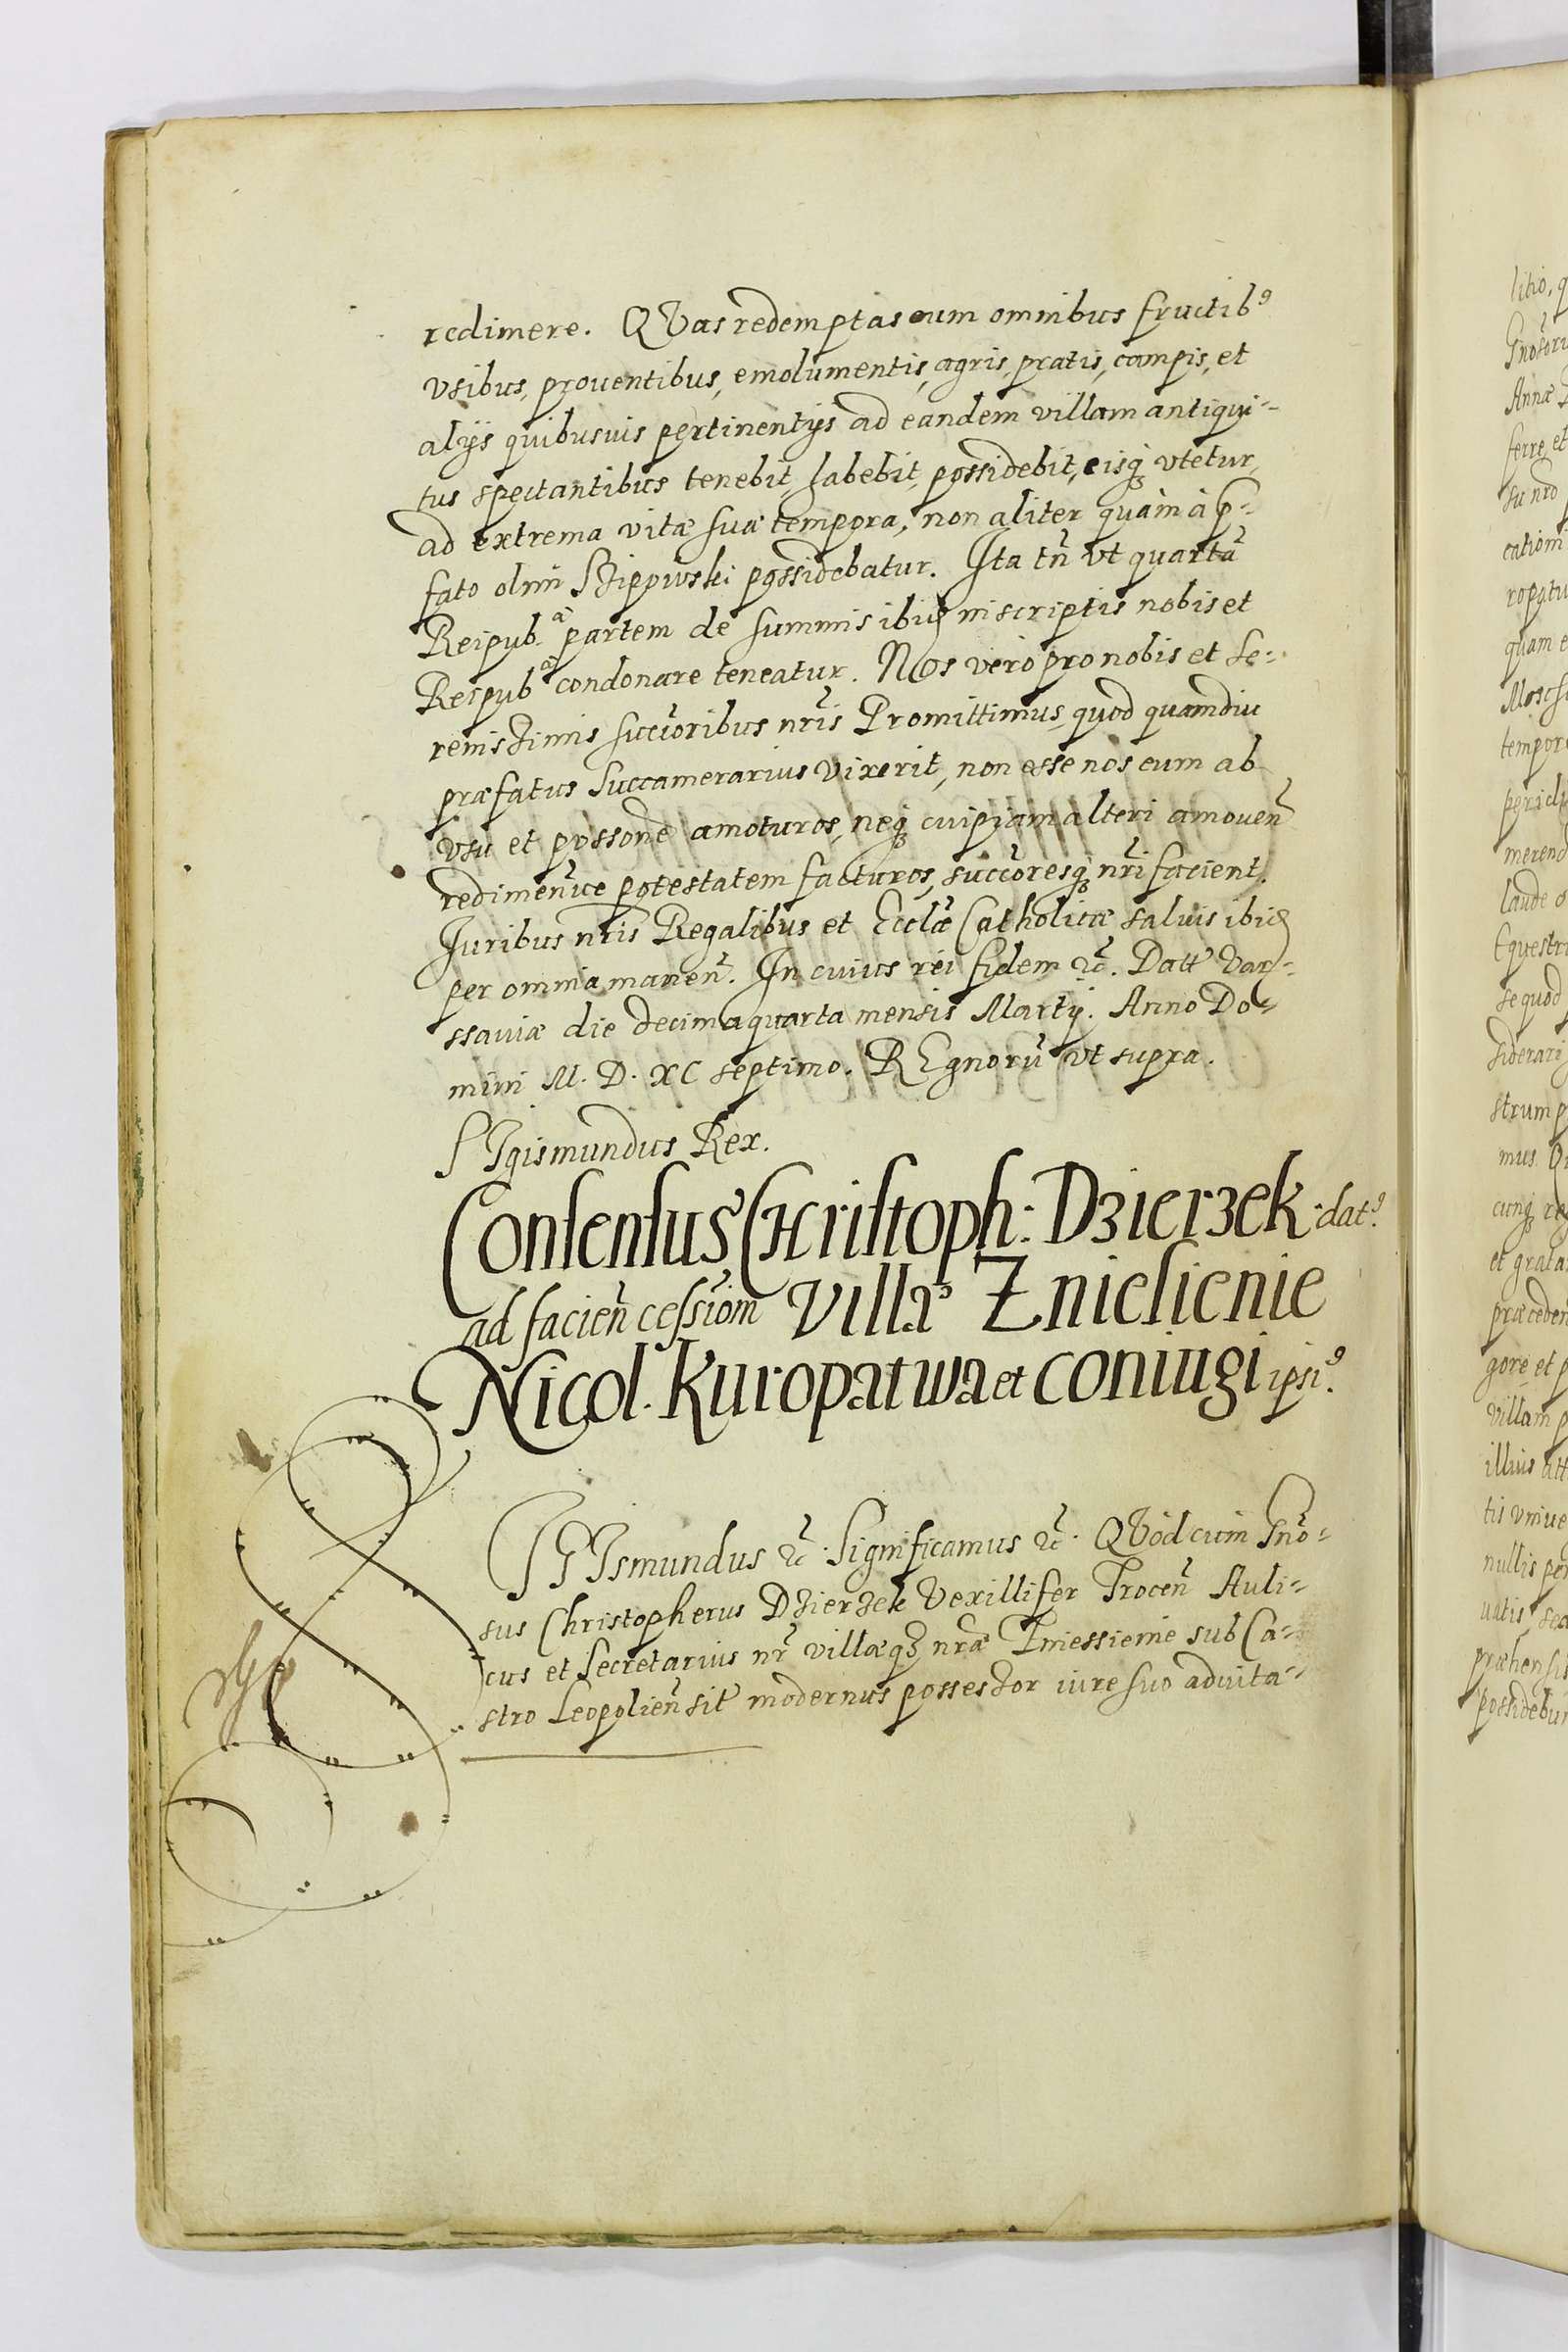 redimere. QVas redemptas cum omnibus fructib⁹
vsibus, prouentibus, emolumentis, agris, pratis, campis, et
alijs quibusuis pertinentijs ad eandem villam antiqui-
tus spectantibus tenebit, habebit, possidebit, eisq₃ vtetur,
ad extrema vitæ suæ tempora, non aliter quàm à p-
fato olim possidebatur. Ita tñ vt quartã
Reipub. ᵃᵉ partem de summis ibidem inscriptis nobis et
Reipub ᵃᵉ condonare teneatur. Nos vero pro nobis et Se-
renissimis succõribus nr̃is Promittimus, quod quamdiu
præfatus Succamerarius vixerit, non esse nos eum ab
vsu et possone amoturos, neq₃ cuipiam alteri amouen̄
redimen̄ue potestatem facturos, succõresq₃ nr̃i facient.
Iuribus nr̃is Regalibus et Ecclæ Catholicæ saluis ibid
per omnia manen̄. In cuius rei fidem &c̃. Datt Var-
ssauiæ die decimaquarta mensis Martij. Anno Do-
mini M. D. XC septimo. REgnorũ vt supra.
SIgismundus Rex.
Consensus CHristoph: Dzierzek dat⁹.
ad facien̄ cessiom Villæ Zniesienie
Nicol. Kuropatwa et coniugi ipsi⁹.
SIGIsmundus &c̃. Significamus &c̃. QVod cum Gnõ-
sus Christopherus Dzierzek Vexillifer Trocen̄ Auli-
cus et Secretarius nr̃ villæq₃ nr̃æ Zniessienie sub Ca-
stro Leopolien̄ sit modernus possessor iure suo aduita-
litio, q
Gnõsoru
Annæ
ferre, et
su nr̃o
cationi
ropatu
quam e
Mosch
tempor
pericl
merend
laude
Equestri
se quod
siderari
strum p
mus. Q
cunq₃ re
et grata
præceden
gore et p
villam p
illius att
tis vniue
nullis per
uatis, sed
præhensi
possidebun